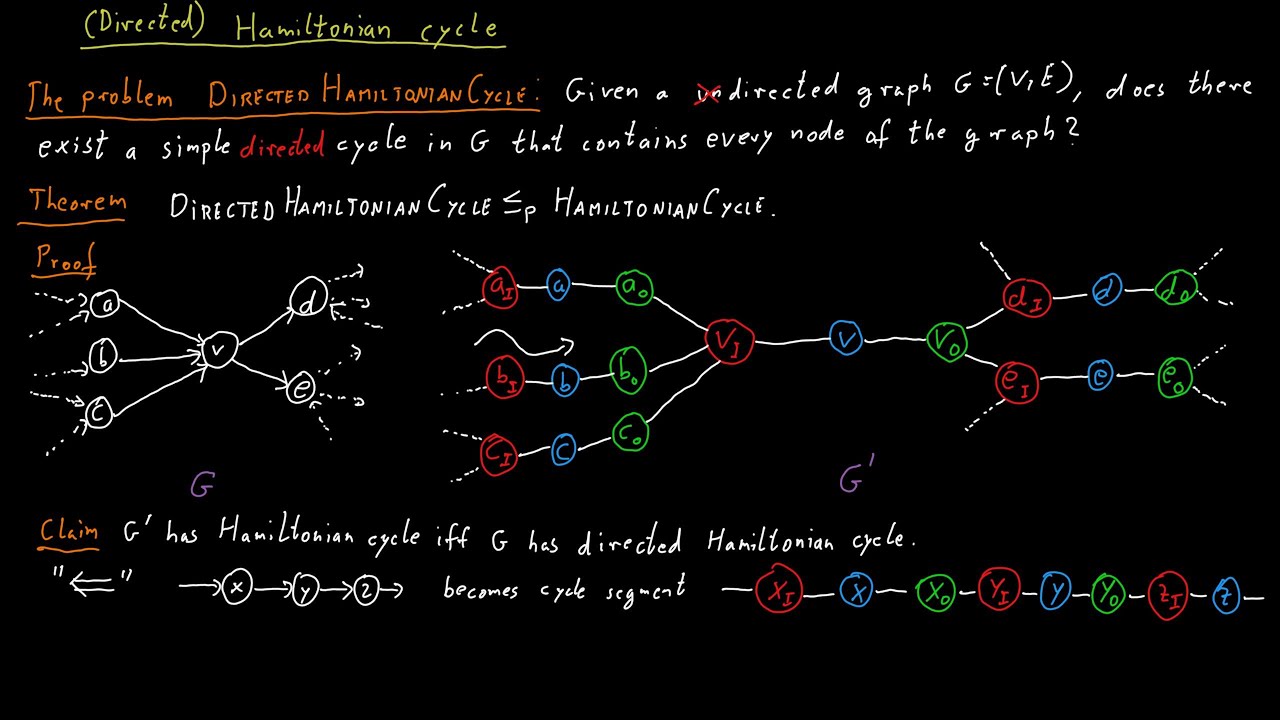 (Directed) Hamiltonian cycle
The problem DIRECTED HAMILTONIAN CYCLE: Given a undirected graph G=(V,E), does there
exist a simple directed cycle in G that contains every node of the graph?
Theorem DIRECTED HAMILTONIAN CYCLE ≤p HAMILTONIAN CYCLE.
Proof
a b c v d e
a_I a a_O
b_I b b_O
c_I c c_O
v_I v v_O
d_I d d_O
e_I e e_O
G G'
Claim G' has Hamiltonian cycle iff G has directed Hamiltonian cycle.
"⇐" x y z becomes cycle segment x_I x x_O y_I y y_O z_I z